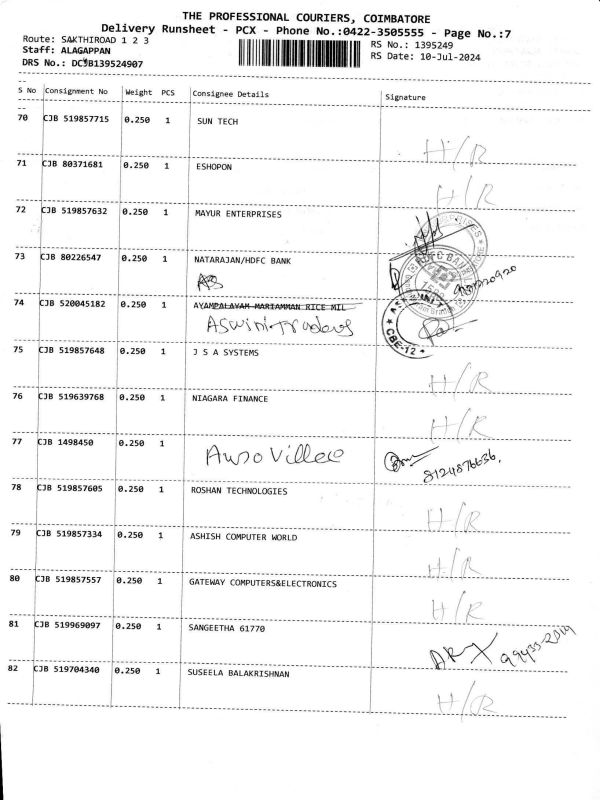 THE PROFESSIONAL COURIERS, COIMBATORE
Delivery Runsheet - PCX - Phone No.:0422-3505555 - Page No.:7
Route: SAKTHIROAD 1 2 3
RS No.: 1395249
Staff: ALAGAPPAN
RS Date: 10-Jul-2024
DRS No.: DCJB139524907
S No Consignment No Weight PCS Consignee Details Signature
70 CJB 519857715 0.250 1 SUN TECH H/R
71 CJB 80371681 0.250 1 ESHOPON H/R
72 CJB 519857632 0.250 1 MAYUR ENTERPRISES
73 CJB 80226547 0.250 1 NATARAJAN/HDFC BANK
74 CJB 520045182 0.250 1 AYAMPALAYAM MARIAMMAN RICE MIL
Aswini Traders
CBE-12
75 CJB 519857648 0.250 1 J S A SYSTEMS H/R
76 CJB 519639768 0.250 1 NIAGARA FINANCE H/R
77 CJB 1498450 0.250 1 Auro Ville
8124876636
78 CJB 519857605 0.250 1 ROSHAN TECHNOLOGIES H/R
79 CJB 519857334 0.250 1 ASHISH COMPUTER WORLD H/R
80 CJB 519857557 0.250 1 GATEWAY COMPUTERS&ELECTRONICS H/R
81 CJB 519969097 0.250 1 SANGEETHA 61770
82 CJB 519704340 0.250 1 SUSEELA BALAKRISHNAN H/R